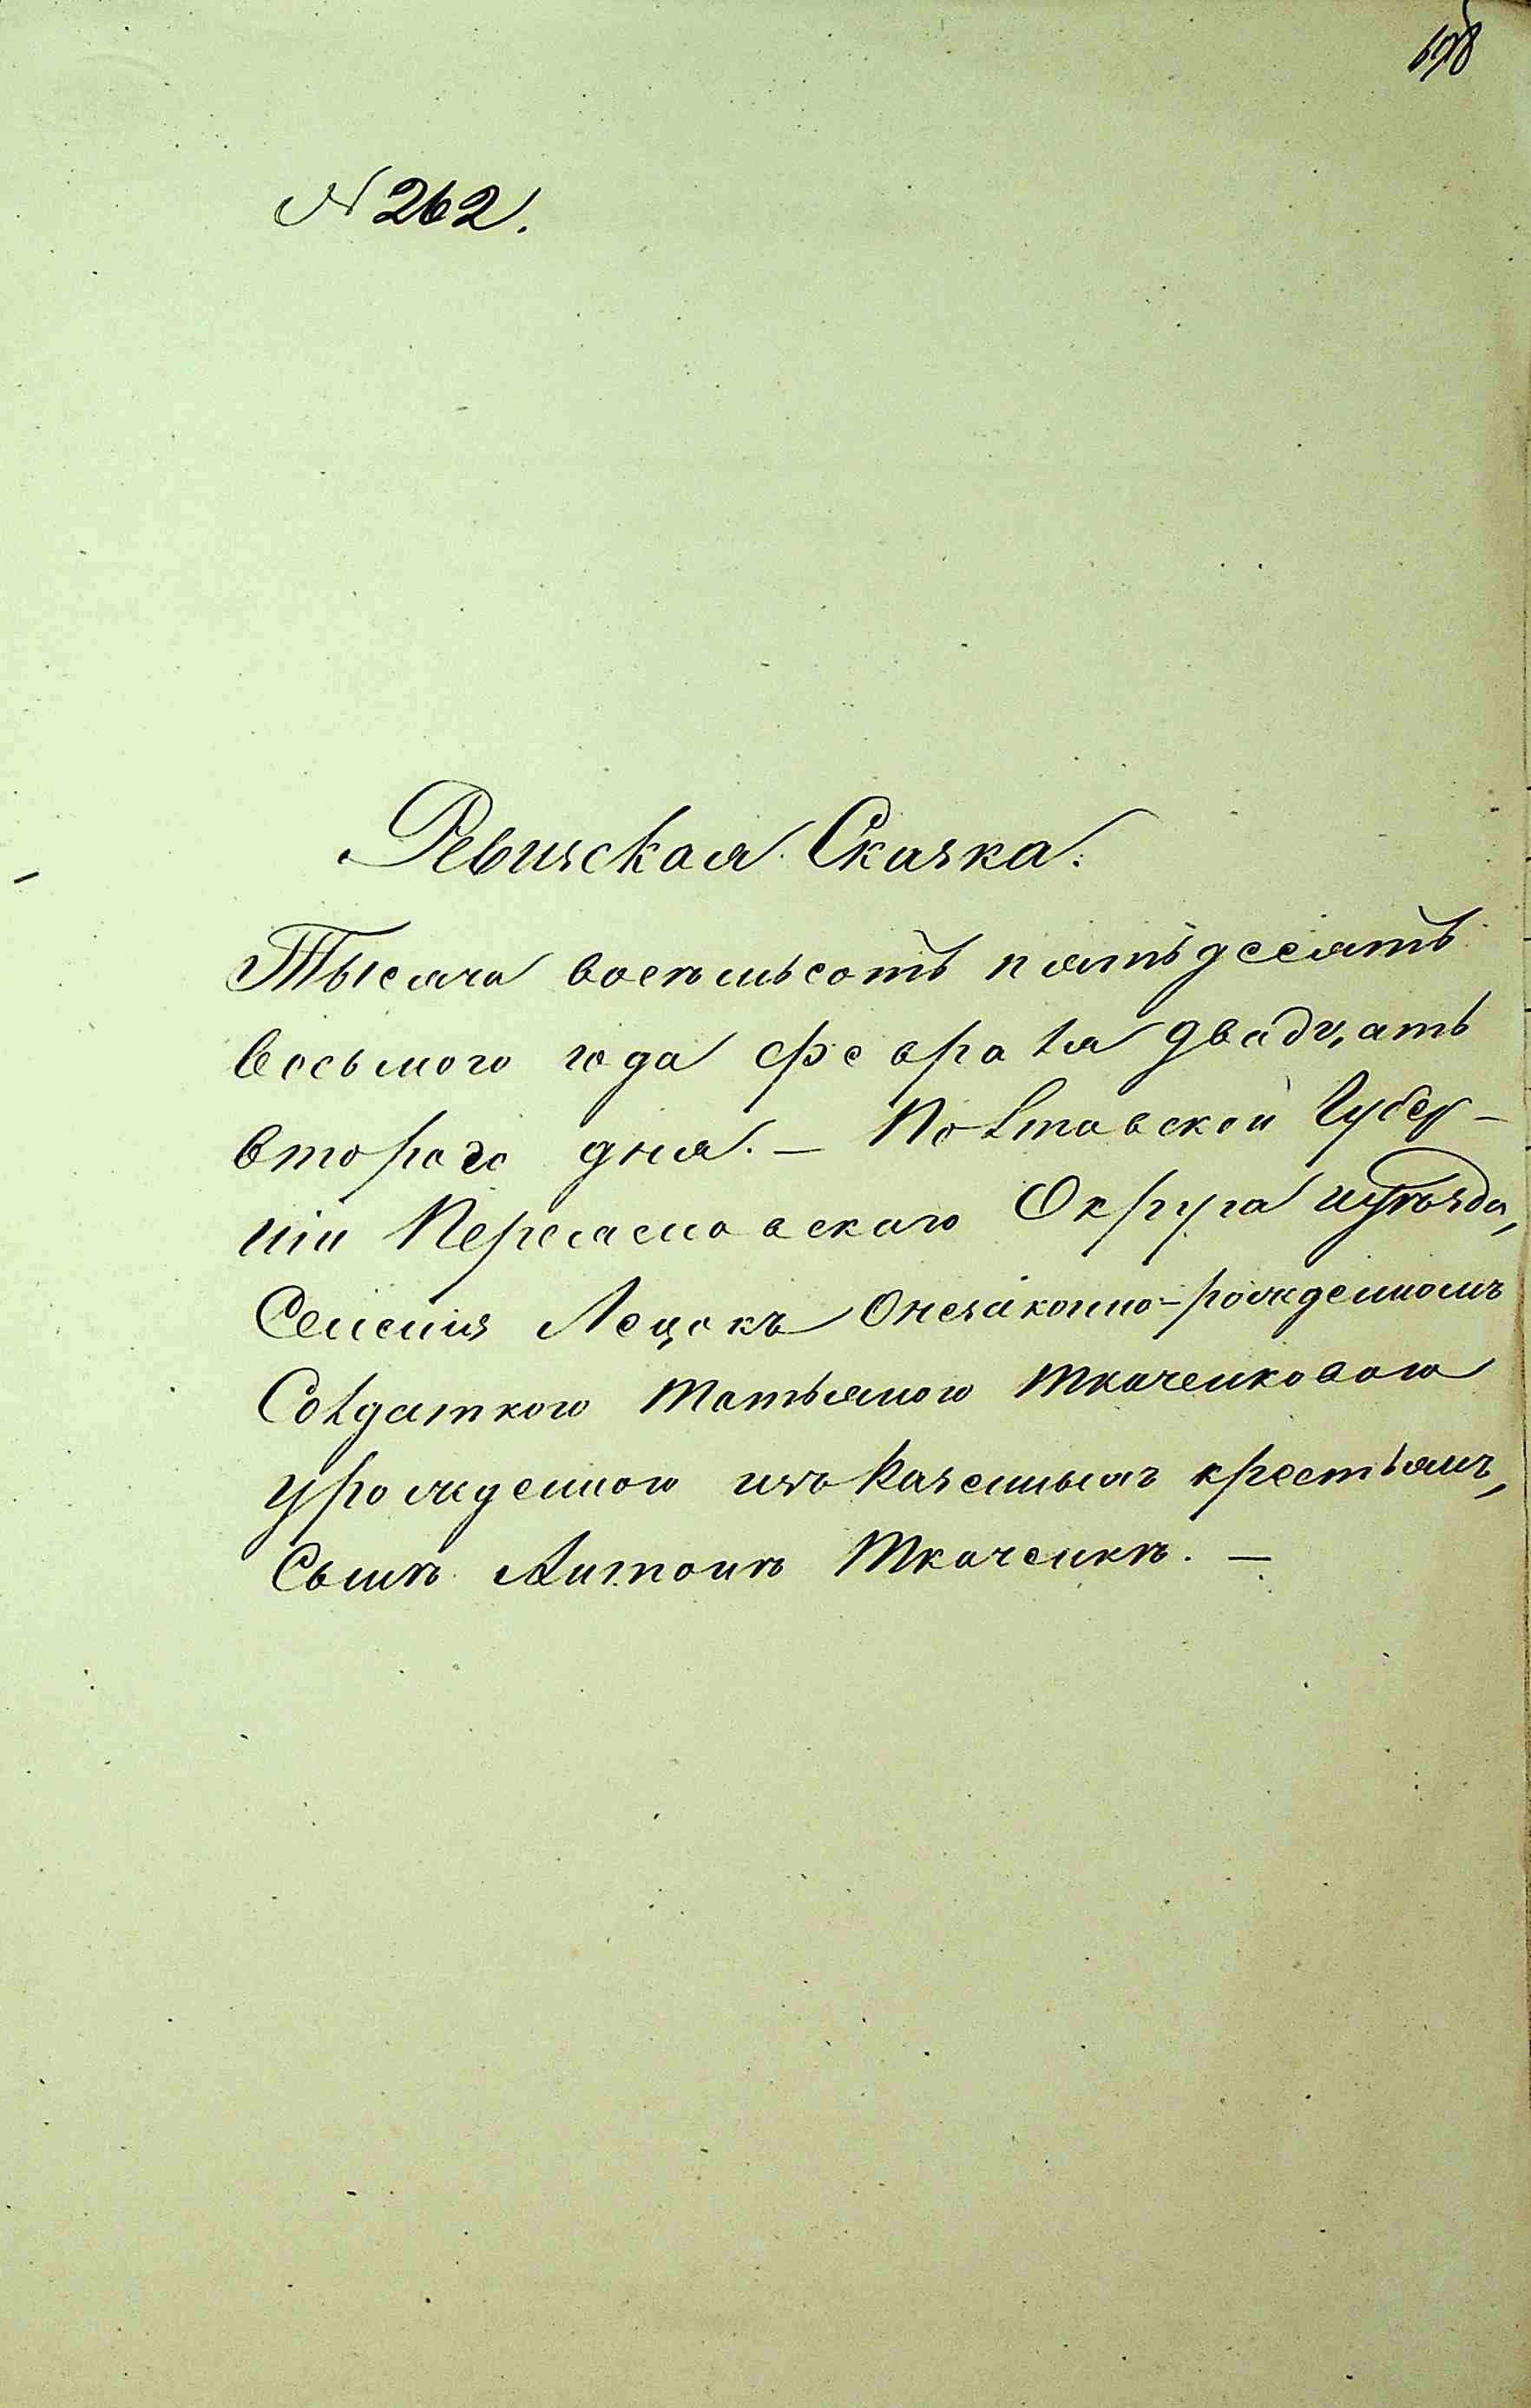 N 262.
Ревизская Сказка.
Тысяча восемьсотъ пятьдесятъ
восьмого года февраля двадцать
второго дня. — Полтавской Губер-
ніи Переяславскаго Округа иуѣзда,
Селенія Лецокъ Онезаконно-рожденномъ
Солдаткою Татьяною Ткаченковою
урожденною изъ Казенныхъ крестьянъ,
Сынѣ Антонѣ Ткаченкѣ. —